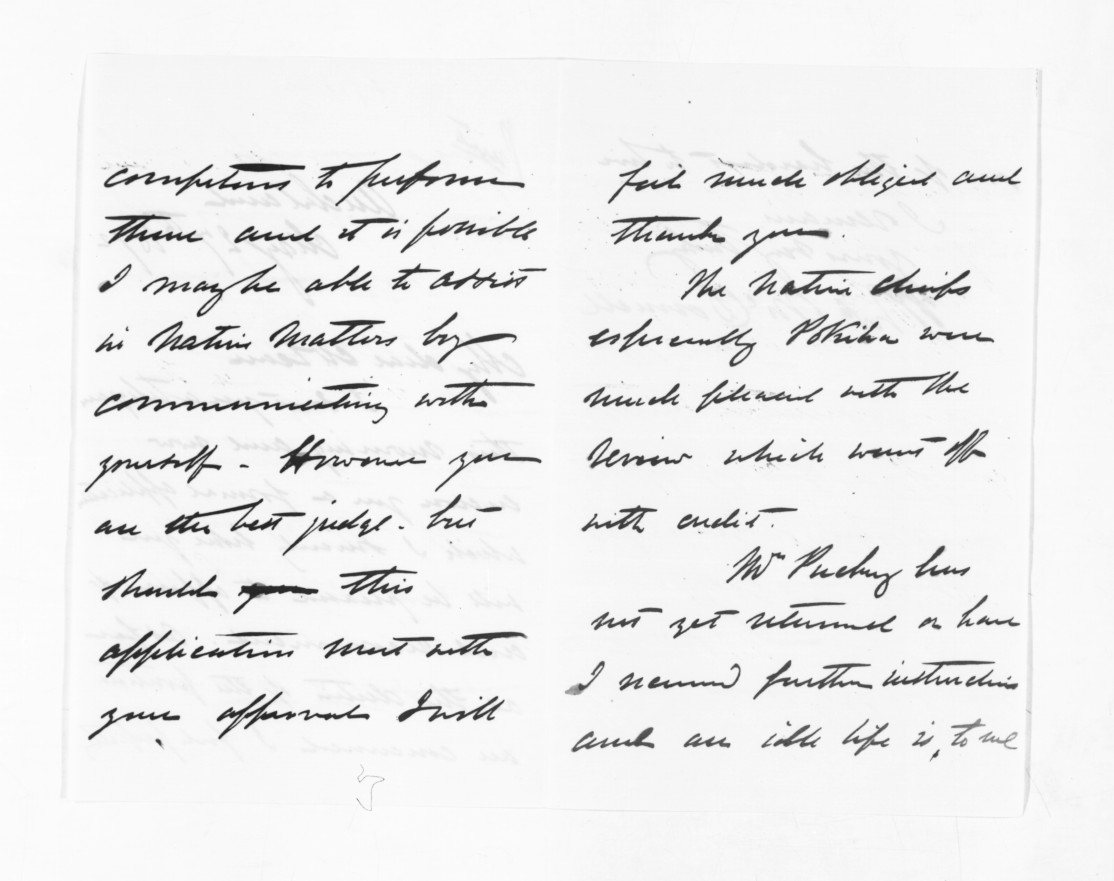 competent to perform
them and it is possible
I may be able to assist
in Native Matters by
communicating with
yourself - However you
are the best judge. but
should you this
application meet with
your approval I will
feel much obliged and
thank you.
The Native chiefs
especially Pokiha were
much pleased with the
review which went off
with credit.
Mr Puckey has
not yet returned or have
I received further instructions
and an idle life is, to me